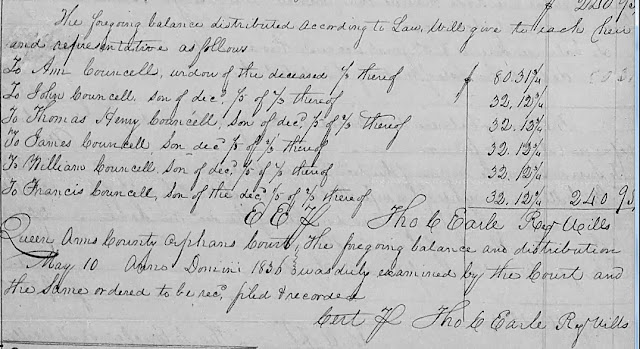 $ 240.95
The foregoing balance distributed according to Law, Will give to each heir
and representative as follows
To Ann Councell, widow of the deceased 1/3 thereof $ 80.31¾
To John Councell, son of dec.d 1/5 of 2/3 thereof 32.12¾
To Thomas Henry Councell, son of dec.d 1/5 of 2/3 thereof 32.12¾
To James Councell son dec.d 1/5 of 2/3 thereof 32.12¾
To William Councell, son of dec.d 1/5 of 2/3 thereof 32.12¾
To Francis Councell, son of the dec.d 1/5 of 2/3 thereof 32.12¾ 240 95
E E Tho C Earle Regr Wills
Queen Anns County Orphans Court, The foregoing balance and distribution
May 10 Anno Domini 1836 was duly examined by the Court and
the same ordered to be rec.d filed & recorded
Cert Tho C Earle Regr Wills